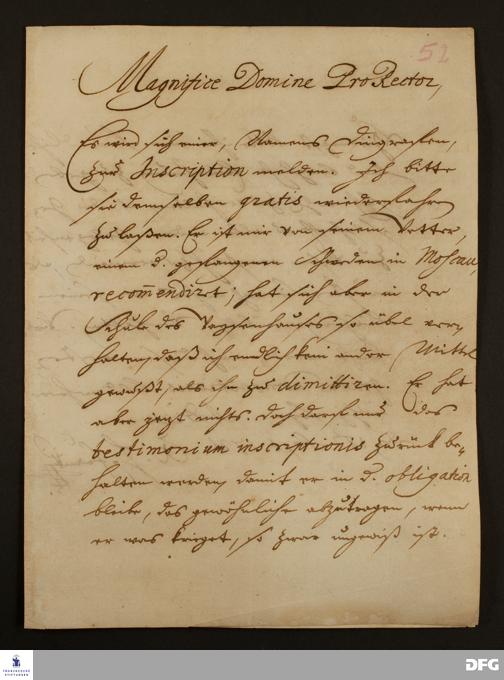 52
Magnifice Domine ProRector,
Es wird sich einer, Namens Dingraffen,
zur Inscription melden. Ich bitte
sie demselben gratis wiederfahren
zu laßen. Er ist mir von seinem Vetter,
einem d. gefangenen Schweden in Moscau,
recom̄endiret; hat sich aber in der
Schule des Waysenhauses so übel ver-
halten, daß ich endlich kein ander Mittel
gewußt, als ihn zu dimittiren. Er hat
aber jetzt nichts. Doch darf nur das
testimonium inscriptionis zurück be-
halten werden, damit er in d. obligation
bleibe, das gewöhnliche abzutragen, wenn
er was krieget, so zwar ungewiß ist.
FRANCKESCHE
STIFTUNGEN
DFG